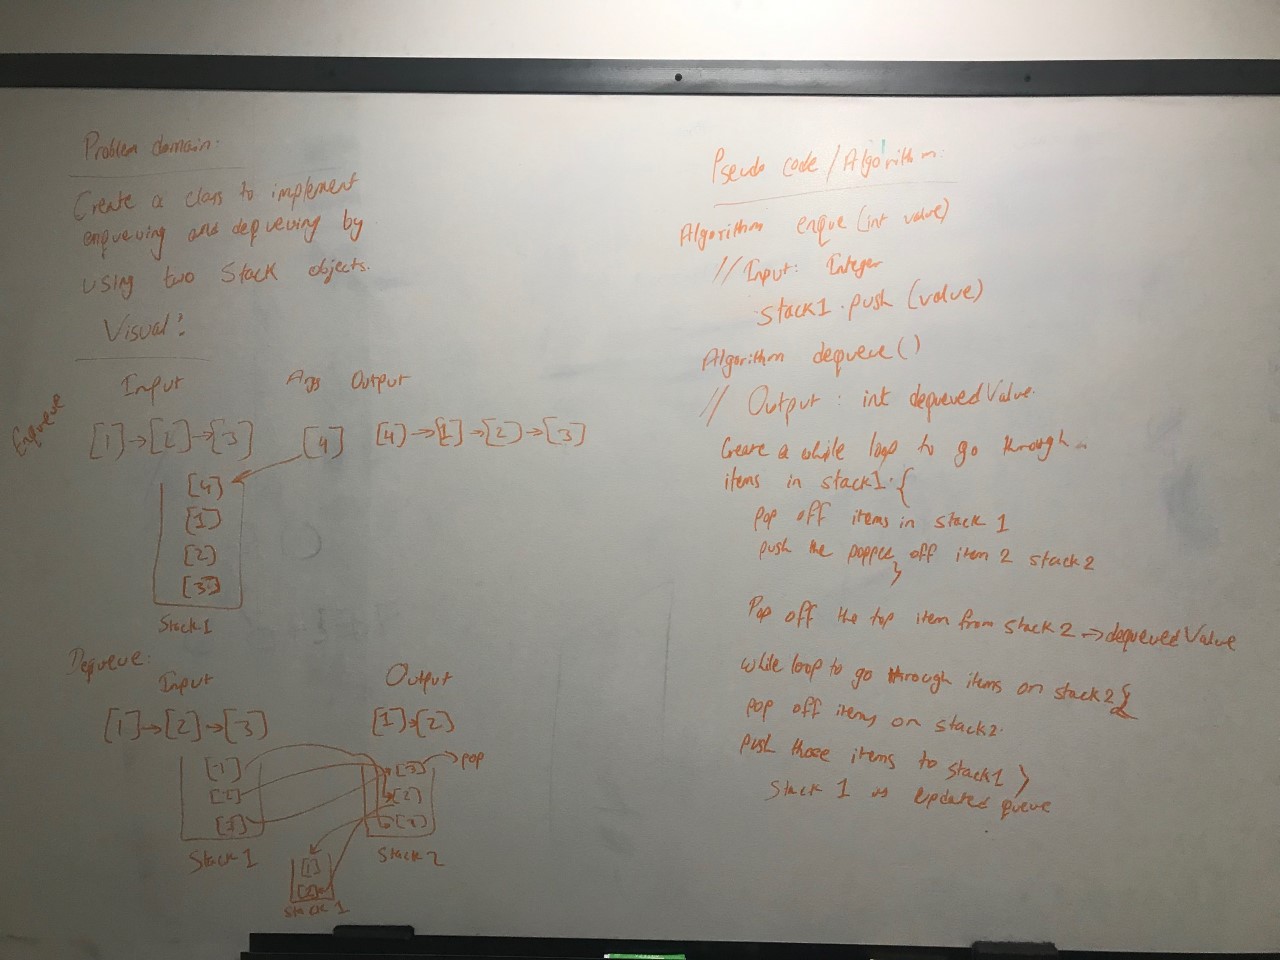 Problem domain:
Create a class to implement
enqueuing and dequeuing by
using two Stack objects.
Visual:
Input
Args
Output
Enqueue
[1]→[2]→[3]
[4]
[4]→[1]→[2]→[3]
[4]
[1]
[2]
[3]
Stack1
Dequeue:
Input
Output
[1]→[2]→[3]
[1]→[2]
[1]
[2]
[3]
→pop
[2]
Stack 1
Stack 2
[1]
[2]
Stack 1
Pseudo code / Algorithm:
Algorithm enque (int value)
// Input: Integer
Stack1.push (value)
Algorithm dequeue()
// Output: int dequeuedValue.
Create a while loop to go through
items in stack1.{
pop off items in stack 1
push the popped off item 2 stack2
}
Pop off the top item from stack 2 → dequeuedValue
while loop to go through items on stack2{
pop off items on stack2.
push those items to stack1 }
Stack 1 is updated queue